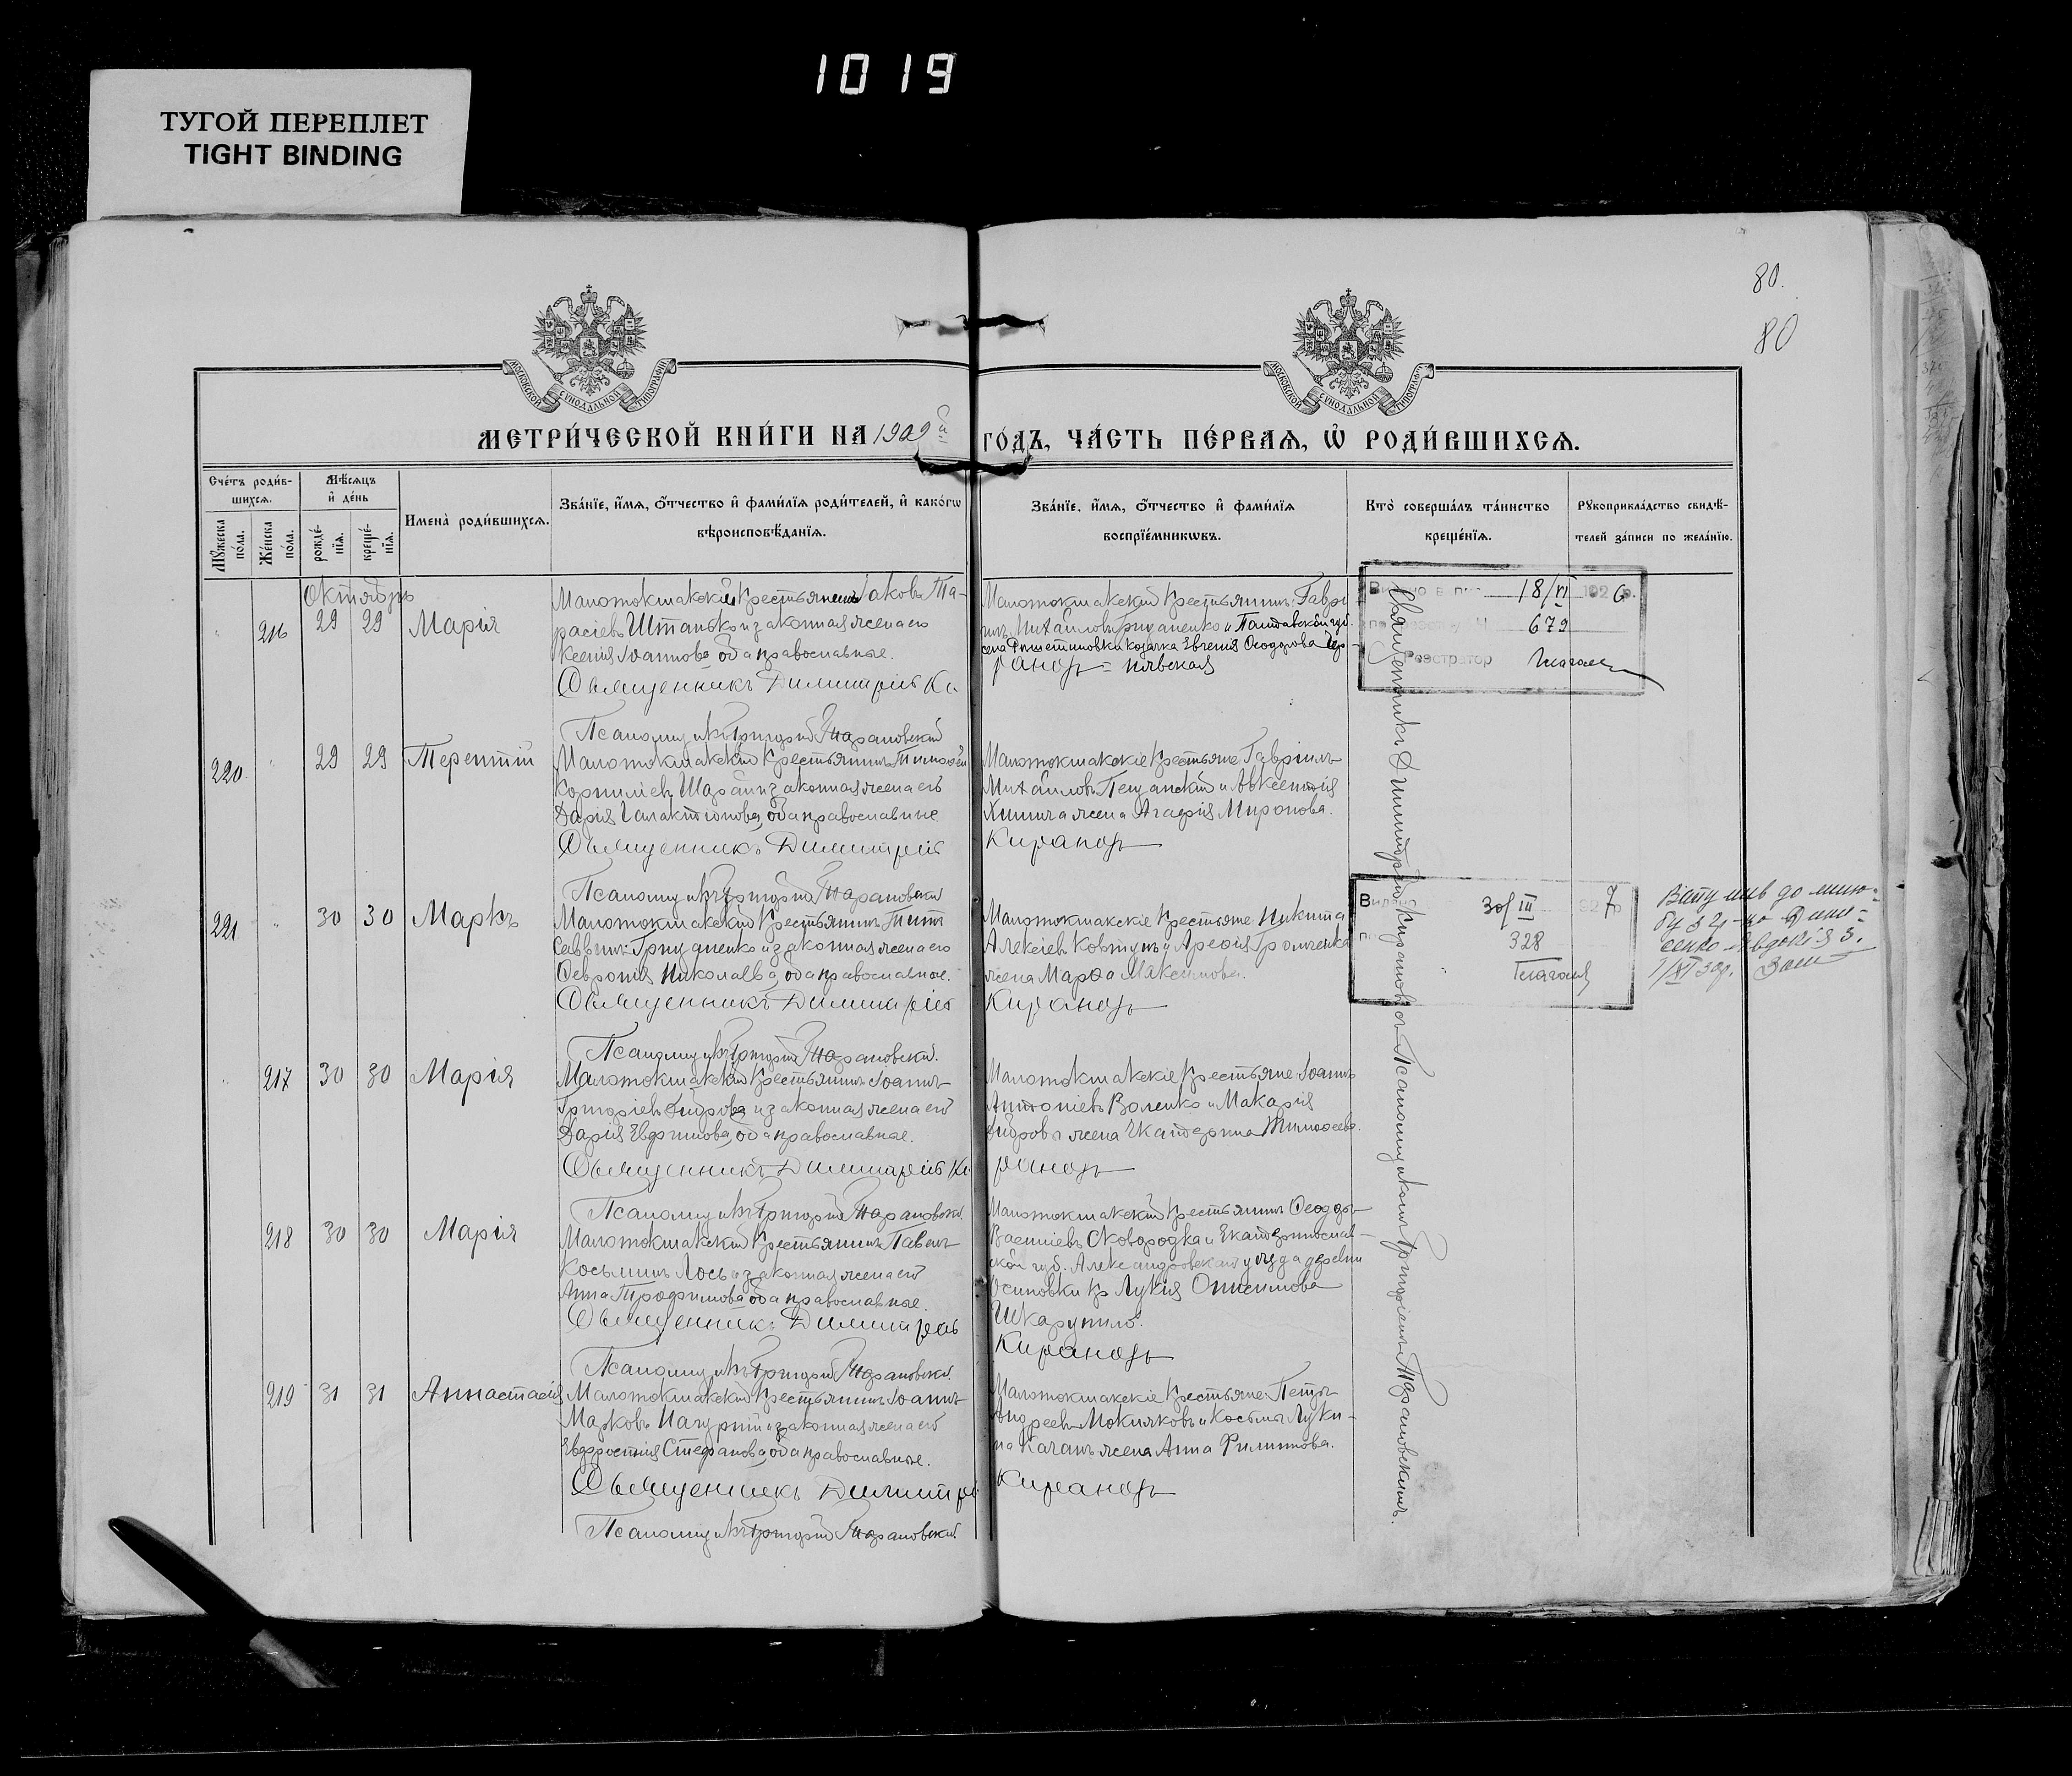 1019
ТУГОЙ ПЕРЕПЛЕТ
TIGHT BINDING
80.
80
МОСКОВСКОЙ СѴНОДАЛЬНОЙ ТИПОГРАФІИ
МОСКОВСКОЙ СѴНОДАЛЬНОЙ ТИПОГРАФІИ
МЕТРИ́ЧЕСКОЙ КНИ́ГИ НА 1909й ГО́ДЪ, ЧА́СТЬ ПЕ́РВАЯ, Ѡ҆ РОДИ́ВШИХСЯ.
Сче́тъ роди́в-
шихся.
Мꙋ́жеска по́ла.
Же́нска по́ла.
Мѣ́сяцъ
и҆ де́нь
рожде́-
нїя.
креще́-
нїя.
Имена̀ роди́вшихся.
Зва́нїе, и҆́мя, ѻ҆́тчество и҆ фами́лїя роди́телей, и҆ како́гѡ
вѣроисповѣ́данїя.
Зва́нїе, и҆́мя, ѻ҆́тчество и҆ фами́лїя
воспрїе́мникѡвъ.
Кто̀ соверша́лъ та́инство
креще́нїя.
Рꙋкоприкла́дство свидѣ́-
телей за́писи по жела́нїю.
Октябрь
216 29 29 Марія
Малотокмакскій Крестьянинъ Іаковъ Та-
расіевъ Штанько и законная жена его
Ксенія Іоаннова, оба православные.
Священникъ Димитрій Ки
Псаломщикъ Григорій Тарановскій
Малотокмакскій Крестьянинъ Гаврі-
илъ Михайловъ Гриценко и Полтавской губ.
села Решетиловки козачка Евгенія Ѳеодорова Чер-
нявская
рановъ
18/VI 1926 р.
679
Реэстратор
220 29 29 Терентій
Малотокмакскій Крестьянинъ Тимоѳей
Корниліевъ Шарай и законная жена его
Дарія Галактіонова, оба православные
Священникъ Димитрій
Псаломщикъ Григорій Тарановскій
Малотокмакскіе Крестьяне Гавріилъ
Михайловъ Песчанскій и Авксентія
жена Агафія Миронова.
Кирановъ
221 30 30 Маркъ
Малотокмакскій Крестьянинъ Титъ
Саввинъ Гриценко и законная жена его
Февронія Николаева, оба православные.
Священникъ Димитрій
Псаломщикъ Григорій Тарановскій.
Малотокмакскіе Крестьяне Никита
Алексіевъ Ковтунъ и
жена Марѳа Максимова.
Кирановъ
30/III 1927
328
Вступив до шлю-
бу з
сенко Євдокія З.
217 30 30 Марія
Малотокмакскій Крестьянинъ Іоаннъ
Григоріевъ и законная жена его
Дарія Евфимова, оба православные.
Священникъ Димитрій Ки
Псаломщикъ Григорій Тарановскій.
Малотокмакскіе Крестьяне Іоаннъ
Антоніевъ Воленко и Макарія
жена Екатерина Тимоѳеева.
рановъ
218 30 30 Марія
Малотокмакскій Крестьянинъ Павелъ
Косьминъ Лось и законная жена его
Анна Трофимова, оба православные.
Священникъ Димитрій
Псаломщикъ Григорій Тарановскій.
Малотокмакскій Крестьянинъ Ѳеодоръ
Василіевъ Сковородка и Екатеринослав-
ской губ. Александровскаго уѣзда деревни
Осиповки кр. Лукія Онисимова
Шкарупило.
Кирановъ
219 31 31 Анастасія
Малотокмакскій Крестьянинъ Іоаннъ
Марковъ и законная жена его
Евфросинія Стефанова, оба православные.
Священникъ Димитрій
Псаломщикъ Григорій Тарановскій.
Малотокмакскіе Крестьяне Петръ
Андреевъ Мокляковъ и Косьмы Луки-
на Качанъ жена Анна Филиппова.
Кирановъ
Священникъ Димитрій Кирановъ съ Псаломщикомъ Григоріемъ Тарановскимъ.